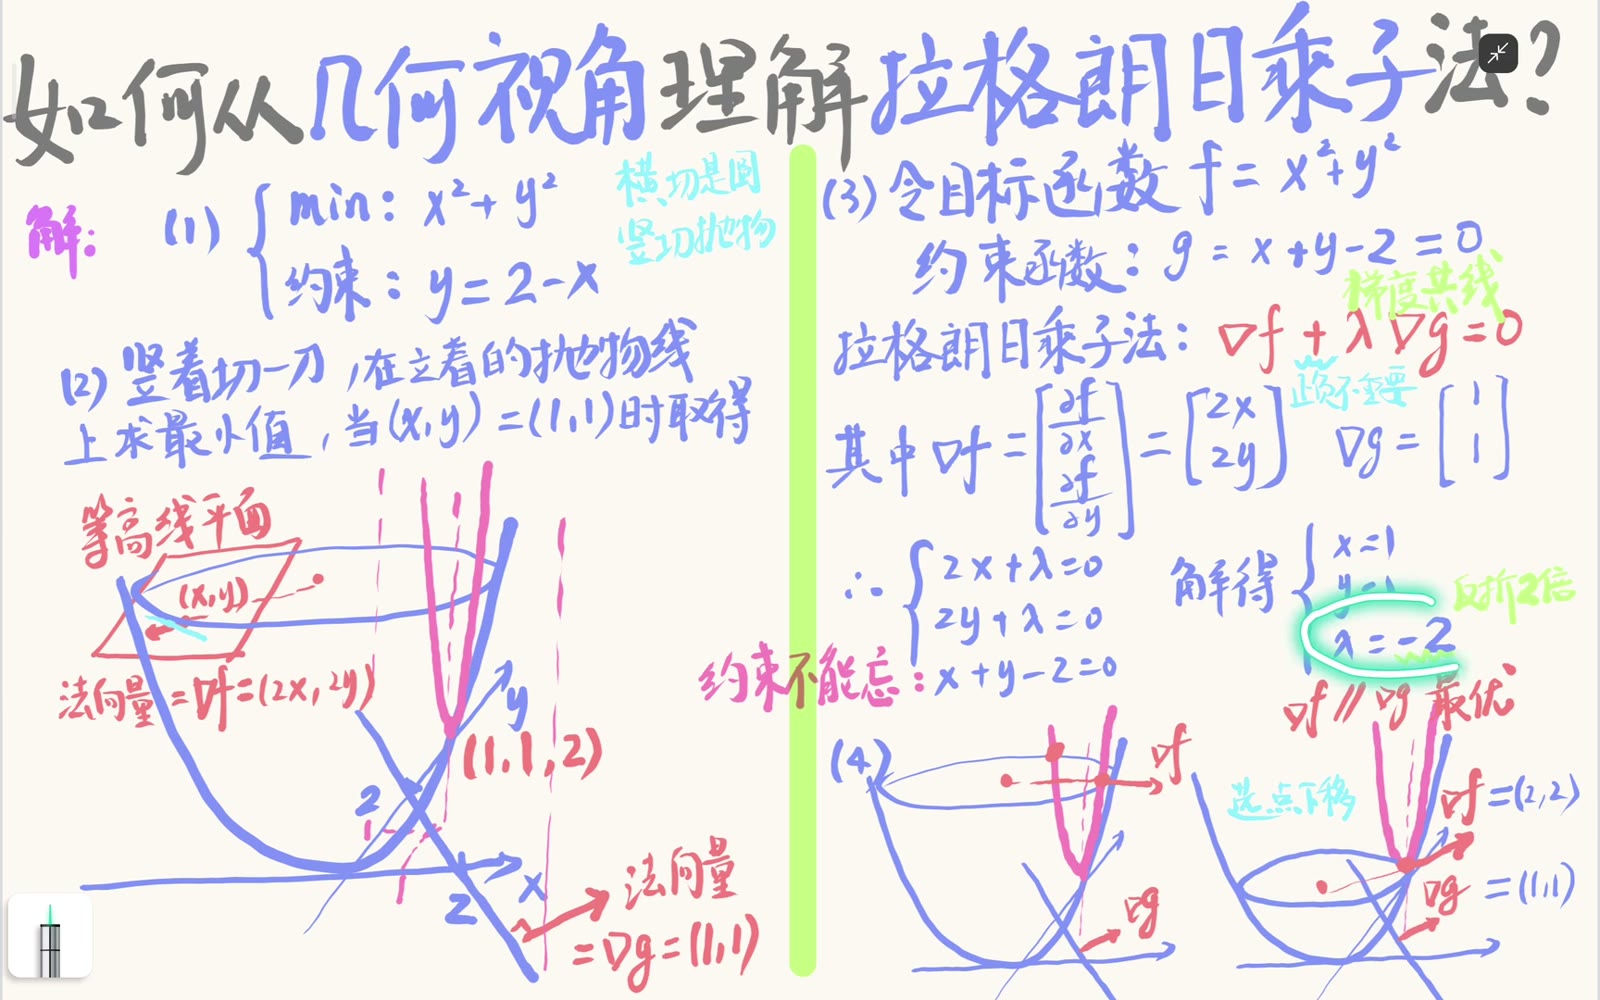 如何从几何视角理解拉格朗日乘子法?
解:
(1) { min: x²+y²
约束: y=2-x
横切是圆
竖切抛物
(2) 竖着切一刀,在立着的抛物线
上求最小值,当(x,y)=(1,1)时取得
等高线平面
(x,y)
法向量=∇f=(2x,2y)
y
(1,1,2)
2
1
2
x
法向量
=∇g=(1,1)
(3) 令目标函数 f=x²+y²
约束函数: g=x+y-2=0
梯度共线
拉格朗日乘子法: ∇f+λ∇g=0
正负不重要
其中 ∇f=[∂f/∂x ∂f/∂y]=[2x 2y] ∇g=[1 1]
∴ { 2x+λ=0
2y+λ=0
约束不能忘: x+y-2=0
解得 { x=1
y=1
λ=-2
反折2倍
∇f∥∇g 最优
(4)
∇f
∇g
选点下移
∇f=(2,2)
∇g=(1,1)